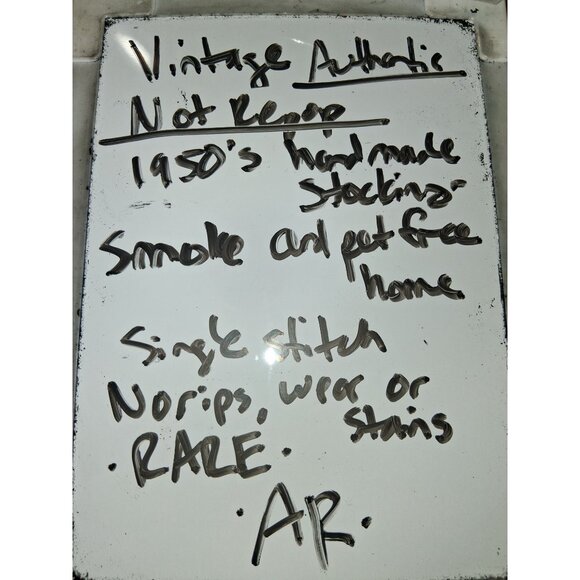 Vintage Authentic
Not Repop
1950's handmade
Stocking
Smoke and pet free
home
Single stitch
No rips, wear or
stains
· RARE ·
· AR ·